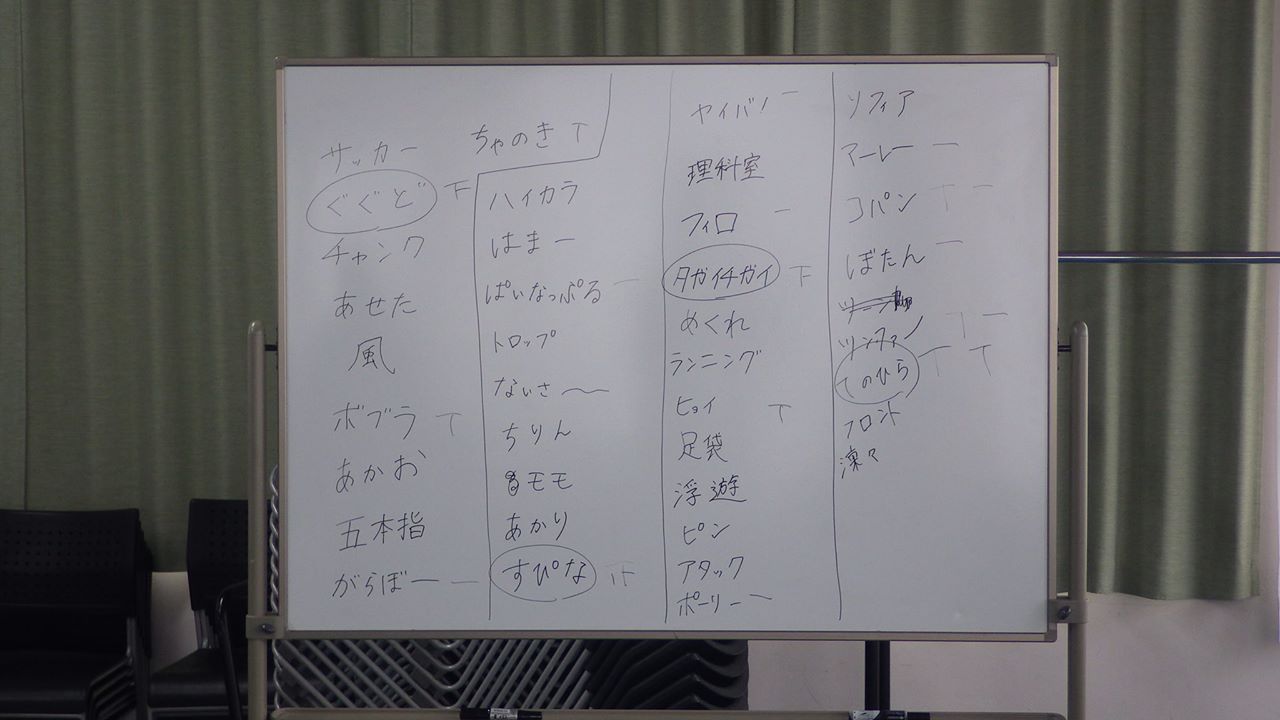 サッカー
ぐぐど
チャンク
あせた
風
ボブラ
あかお
五本指
がらぼー
ちゃのき
ハイカラ
はまー
ぱいなっぷる
トロップ
ないさ〜
ちりん
モモ
あかり
すぴな
ヤイバ
理科室
フィロ
タガイチガイ
めくれ
ランニング
ヒョイ
足袋
浮遊
ピン
アタック
ポーリー
ソフィア
マーレー
コパン
ぼたん
てのひら
フロント
凍々